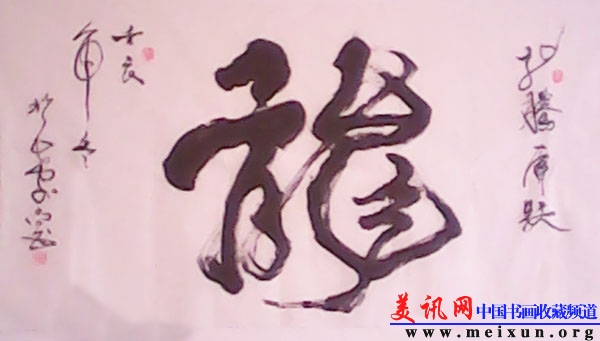 龙腾虎跃
龍
壬辰
年冬
美讯网 中国书画收藏频道
www.meixun.org